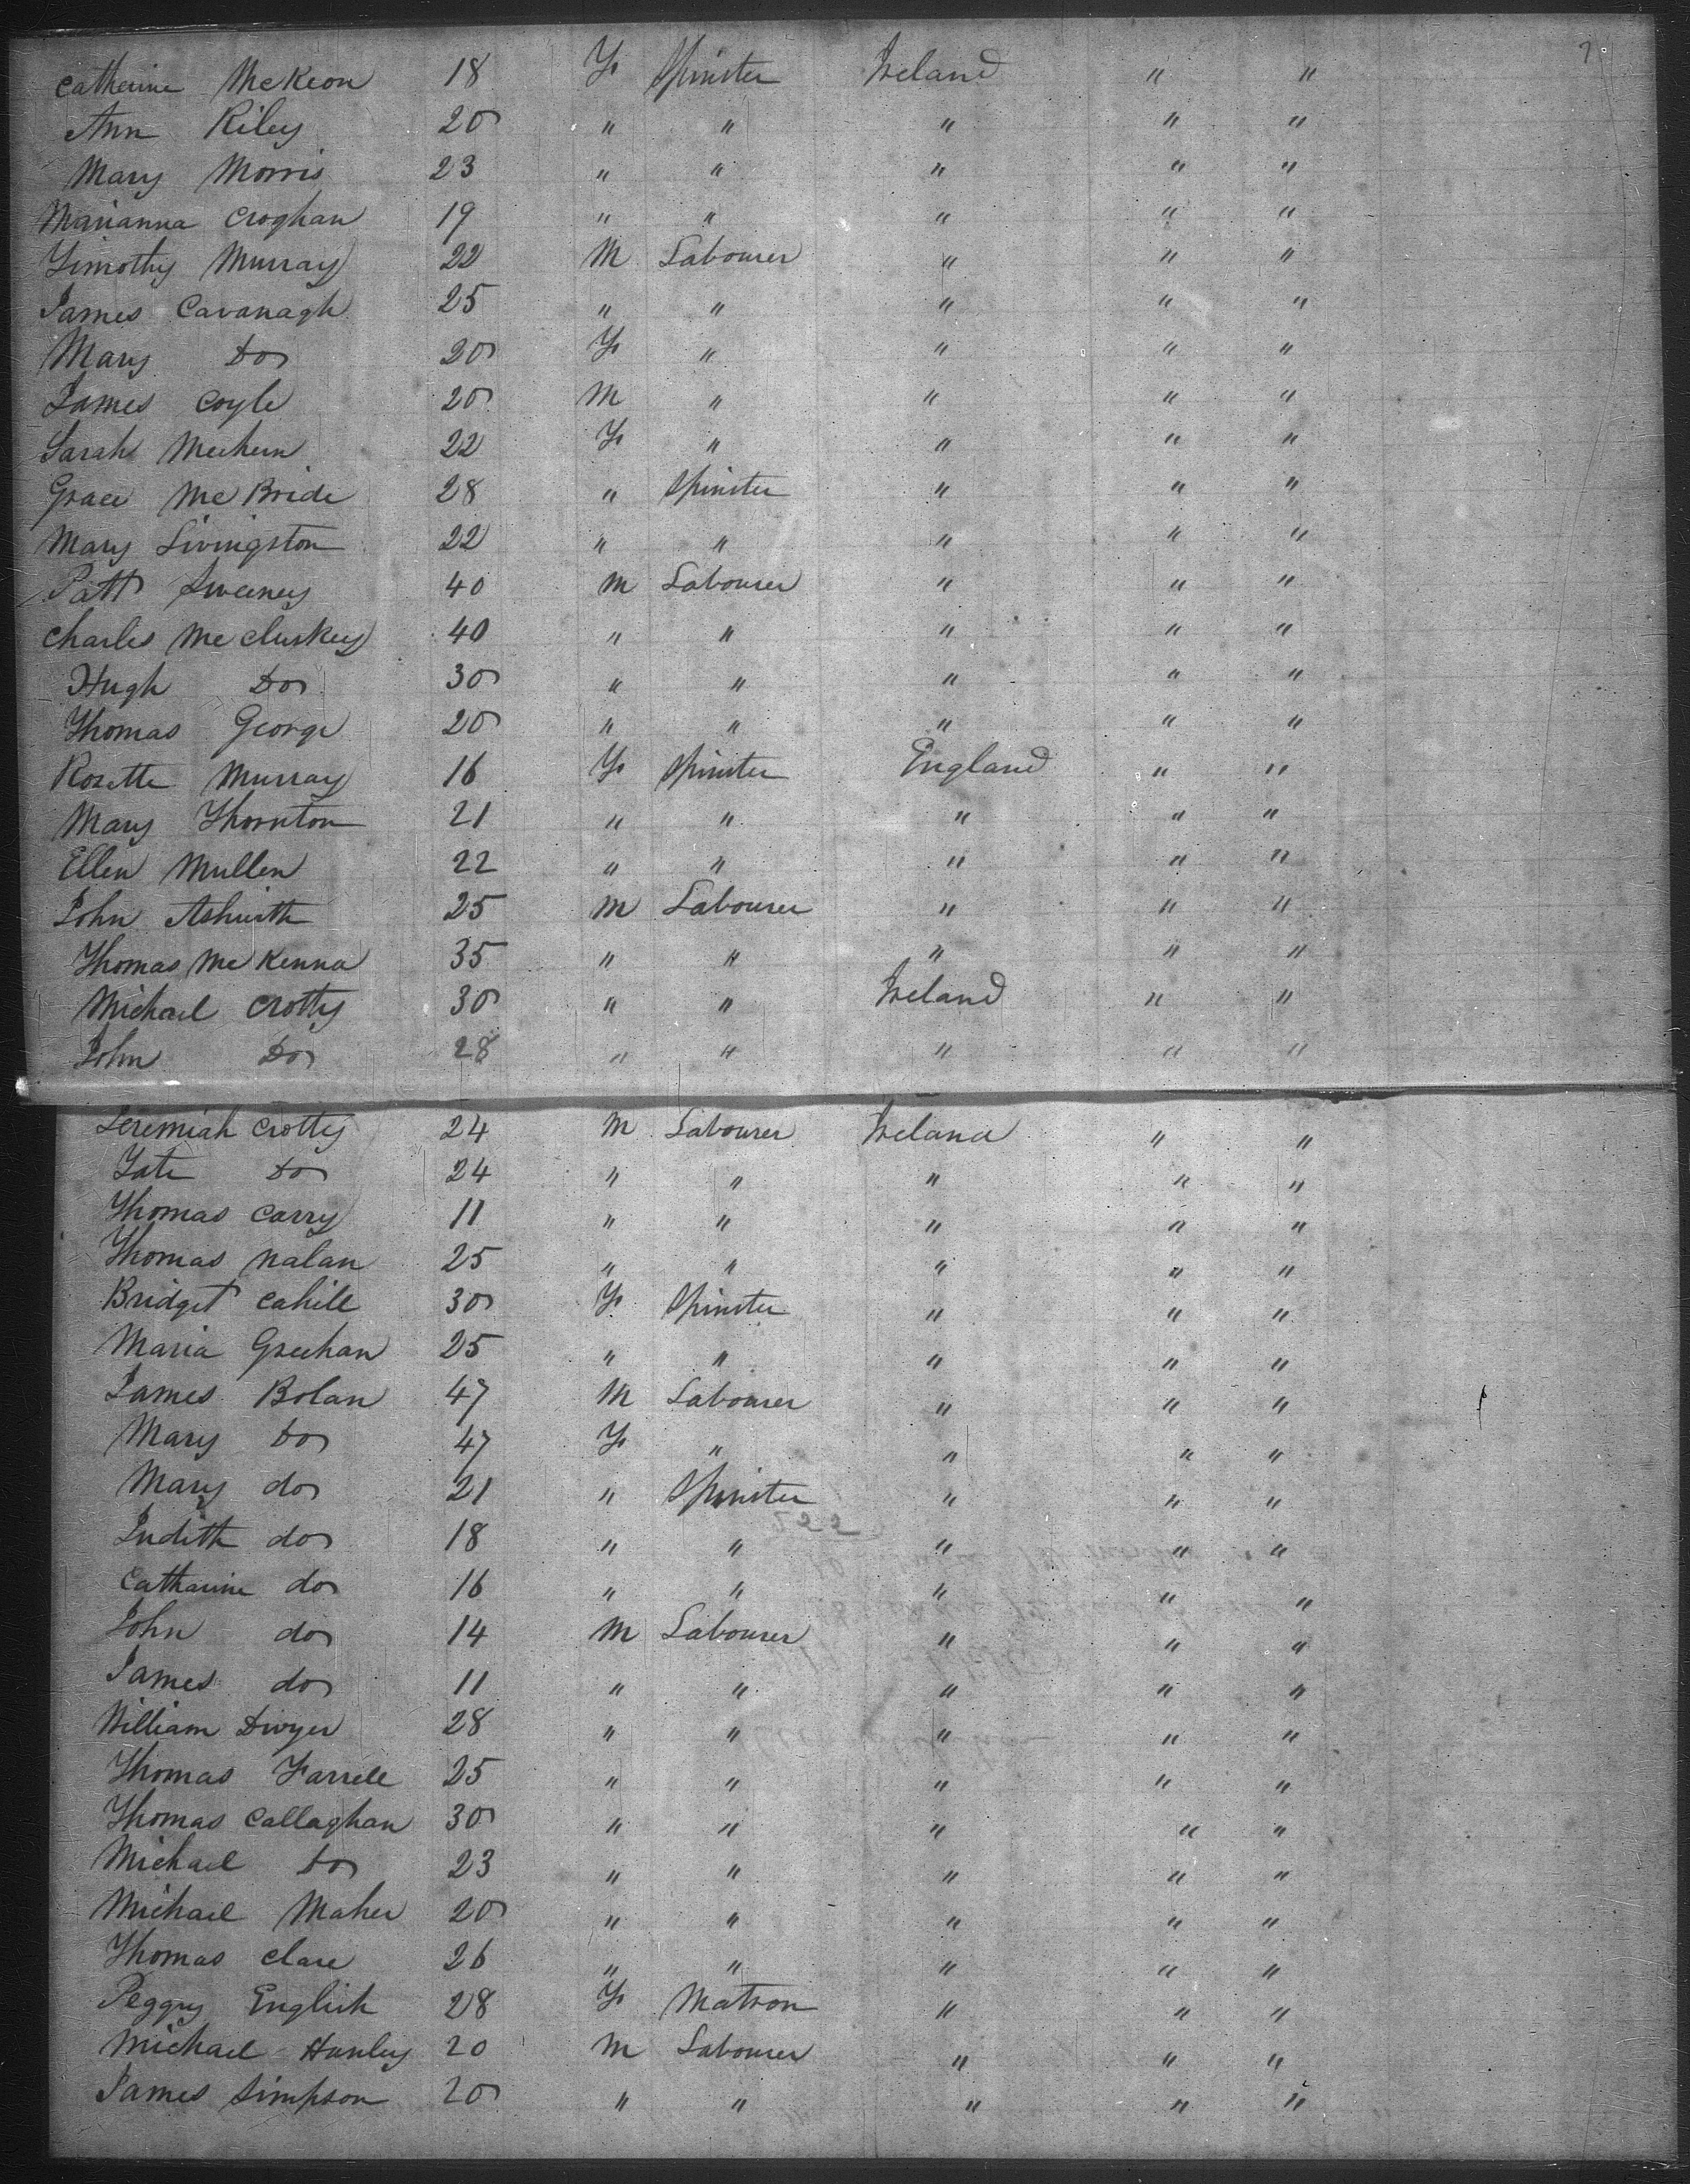 Catherine McKeon 18 F Spinster Ireland " "
Ann Riley 20 " " " " "
Mary Morris 23 " " " " "
Marianna Croghan 19 " " " " "
Timothy Murray 22 M Labourer " " "
James Cavanagh 25 " " " " "
Mary Do 20 F " " " "
James Coyle 20 M " " " "
Sarah Meehern 22 F " " " "
Grace McBride 28 " Spinster " " "
Mary Livingston 22 " " " " "
Patt Sweeney 40 M Labourer " " "
Charles McCluskey 40 " " " " "
Hugh Do 30 " " " " "
Thomas George 20 " " " " "
Rosette Murray 16 F Spinster England " "
Mary Thornton 21 " " " " "
Ellen Mullen 22 " " " " "
John Ashwith 25 M Labourer " " "
Thomas McKenna 35 " " " " "
Michael Crotty 30 " " Ireland " "
John Do 28 " " " " "
Jeremiah Crotty 24 M Labourer Ireland " "
Do 24 " " " " "
Thomas Carry 11 " " " " "
Thomas Nalan 25 " " " " "
Bridget Cahill 30 F Spinster " " "
Maria Greehan 25 " " " " "
James Bolan 47 M Labourer " " "
Mary Do 47 F " " " "
Mary do 21 " Spinster " " "
Judith do 18 " " " " "
Catharine do 16 " " " " "
John do 14 M Labourer " " "
James do 11 " " " " "
William Dwyer 28 " " " " "
Thomas Farrell 25 " " " " "
Thomas Callaghan 30 " " " " "
Michael Do 23 " " " " "
Michael Maher 20 " " " " "
Thomas Clare 26 " " " " "
Peggy English 28 F Matron " " "
Michael Hanley 20 M Labourer " " "
James Simpson 20 " " " " "